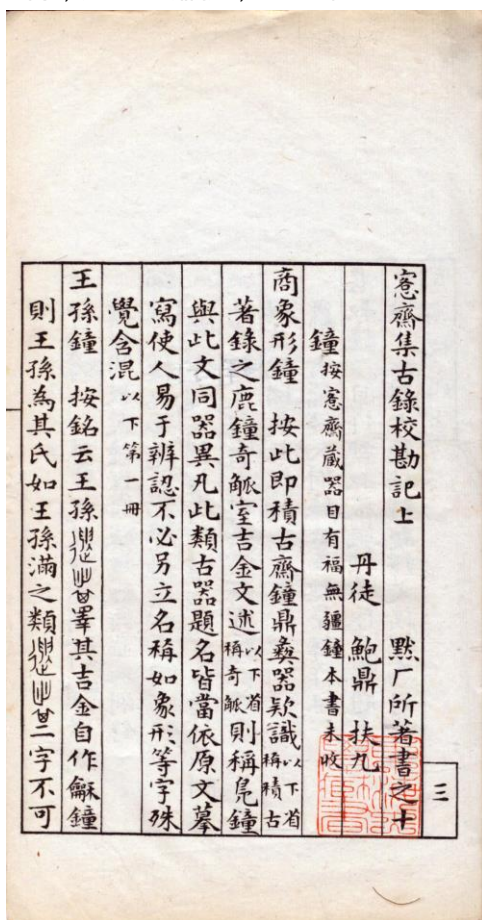 愙齋集古錄校勘記上　默厂所著書之十
三
丹徒　鮑鼎　扶九
鐘按愙齋藏器目有福無疆鐘本書未收
商象形鐘　按此即積古齋鐘鼎彝器欵識以下省稱積古
著錄之鹿鐘奇觚室吉金文述以下省稱奇觚則稱鳧鐘
與此文同器異凡此類古器題名皆當依原文摹
寫使人易于辨認不必另立名稱如象形等字殊
覺含混以下第一冊
王孫鐘　按銘云王孫擇其吉金自作龢鐘
則王孫為其氏如王孫滿之類二字不可